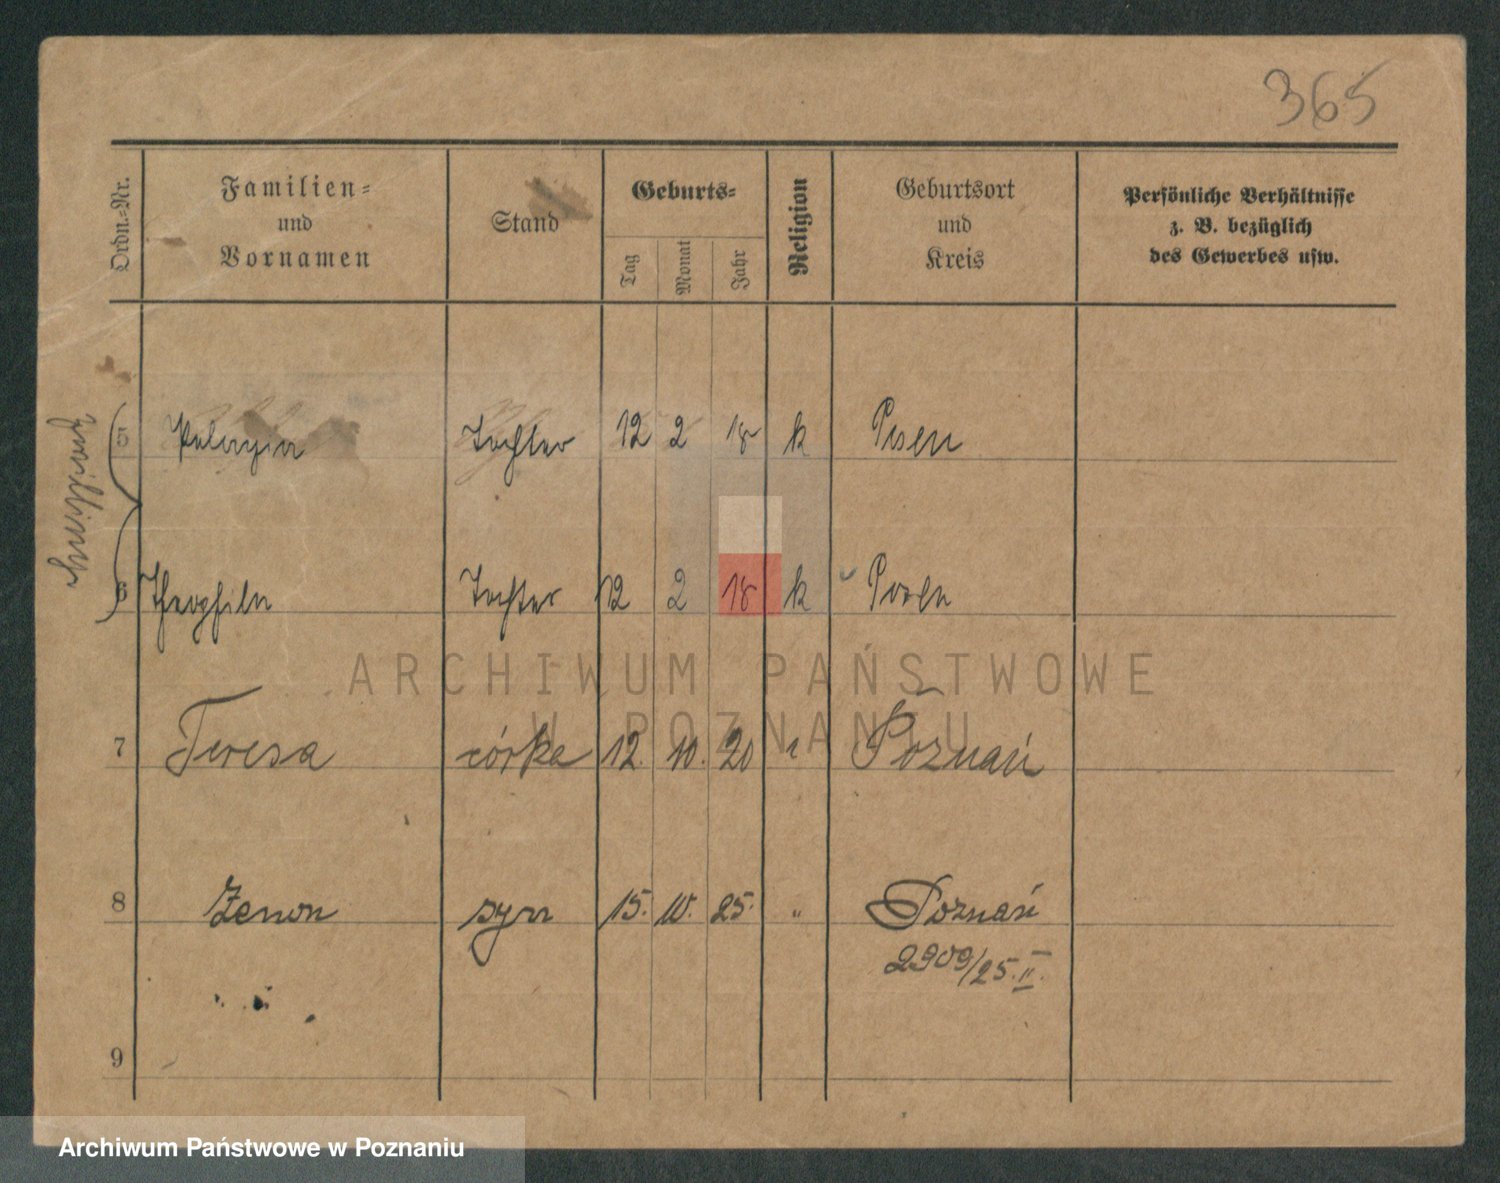 365
Ordn.-Nr.
Familien-
und
Vornamen
Stand
Geburts-
Tag
Monat
Jahr
Religion
Geburtsort
und
Kreis
Persönliche Verhältnisse
z. B. bezüglich
des Gewerbes usw.
Zwillinge
5 Pelagia Tochter 12 2 18 k Posen
6 Theophila Tochter 12 2 18 k Posen
ARCHIWUM PAŃSTWOWE
W POZNANIU
7 Teresa córka 12. 10. 20 " Poznań
8 Zenon syn 15. 10. 25. " Poznań
2909/25. II.
9
Archiwum Państwowe w Poznaniu